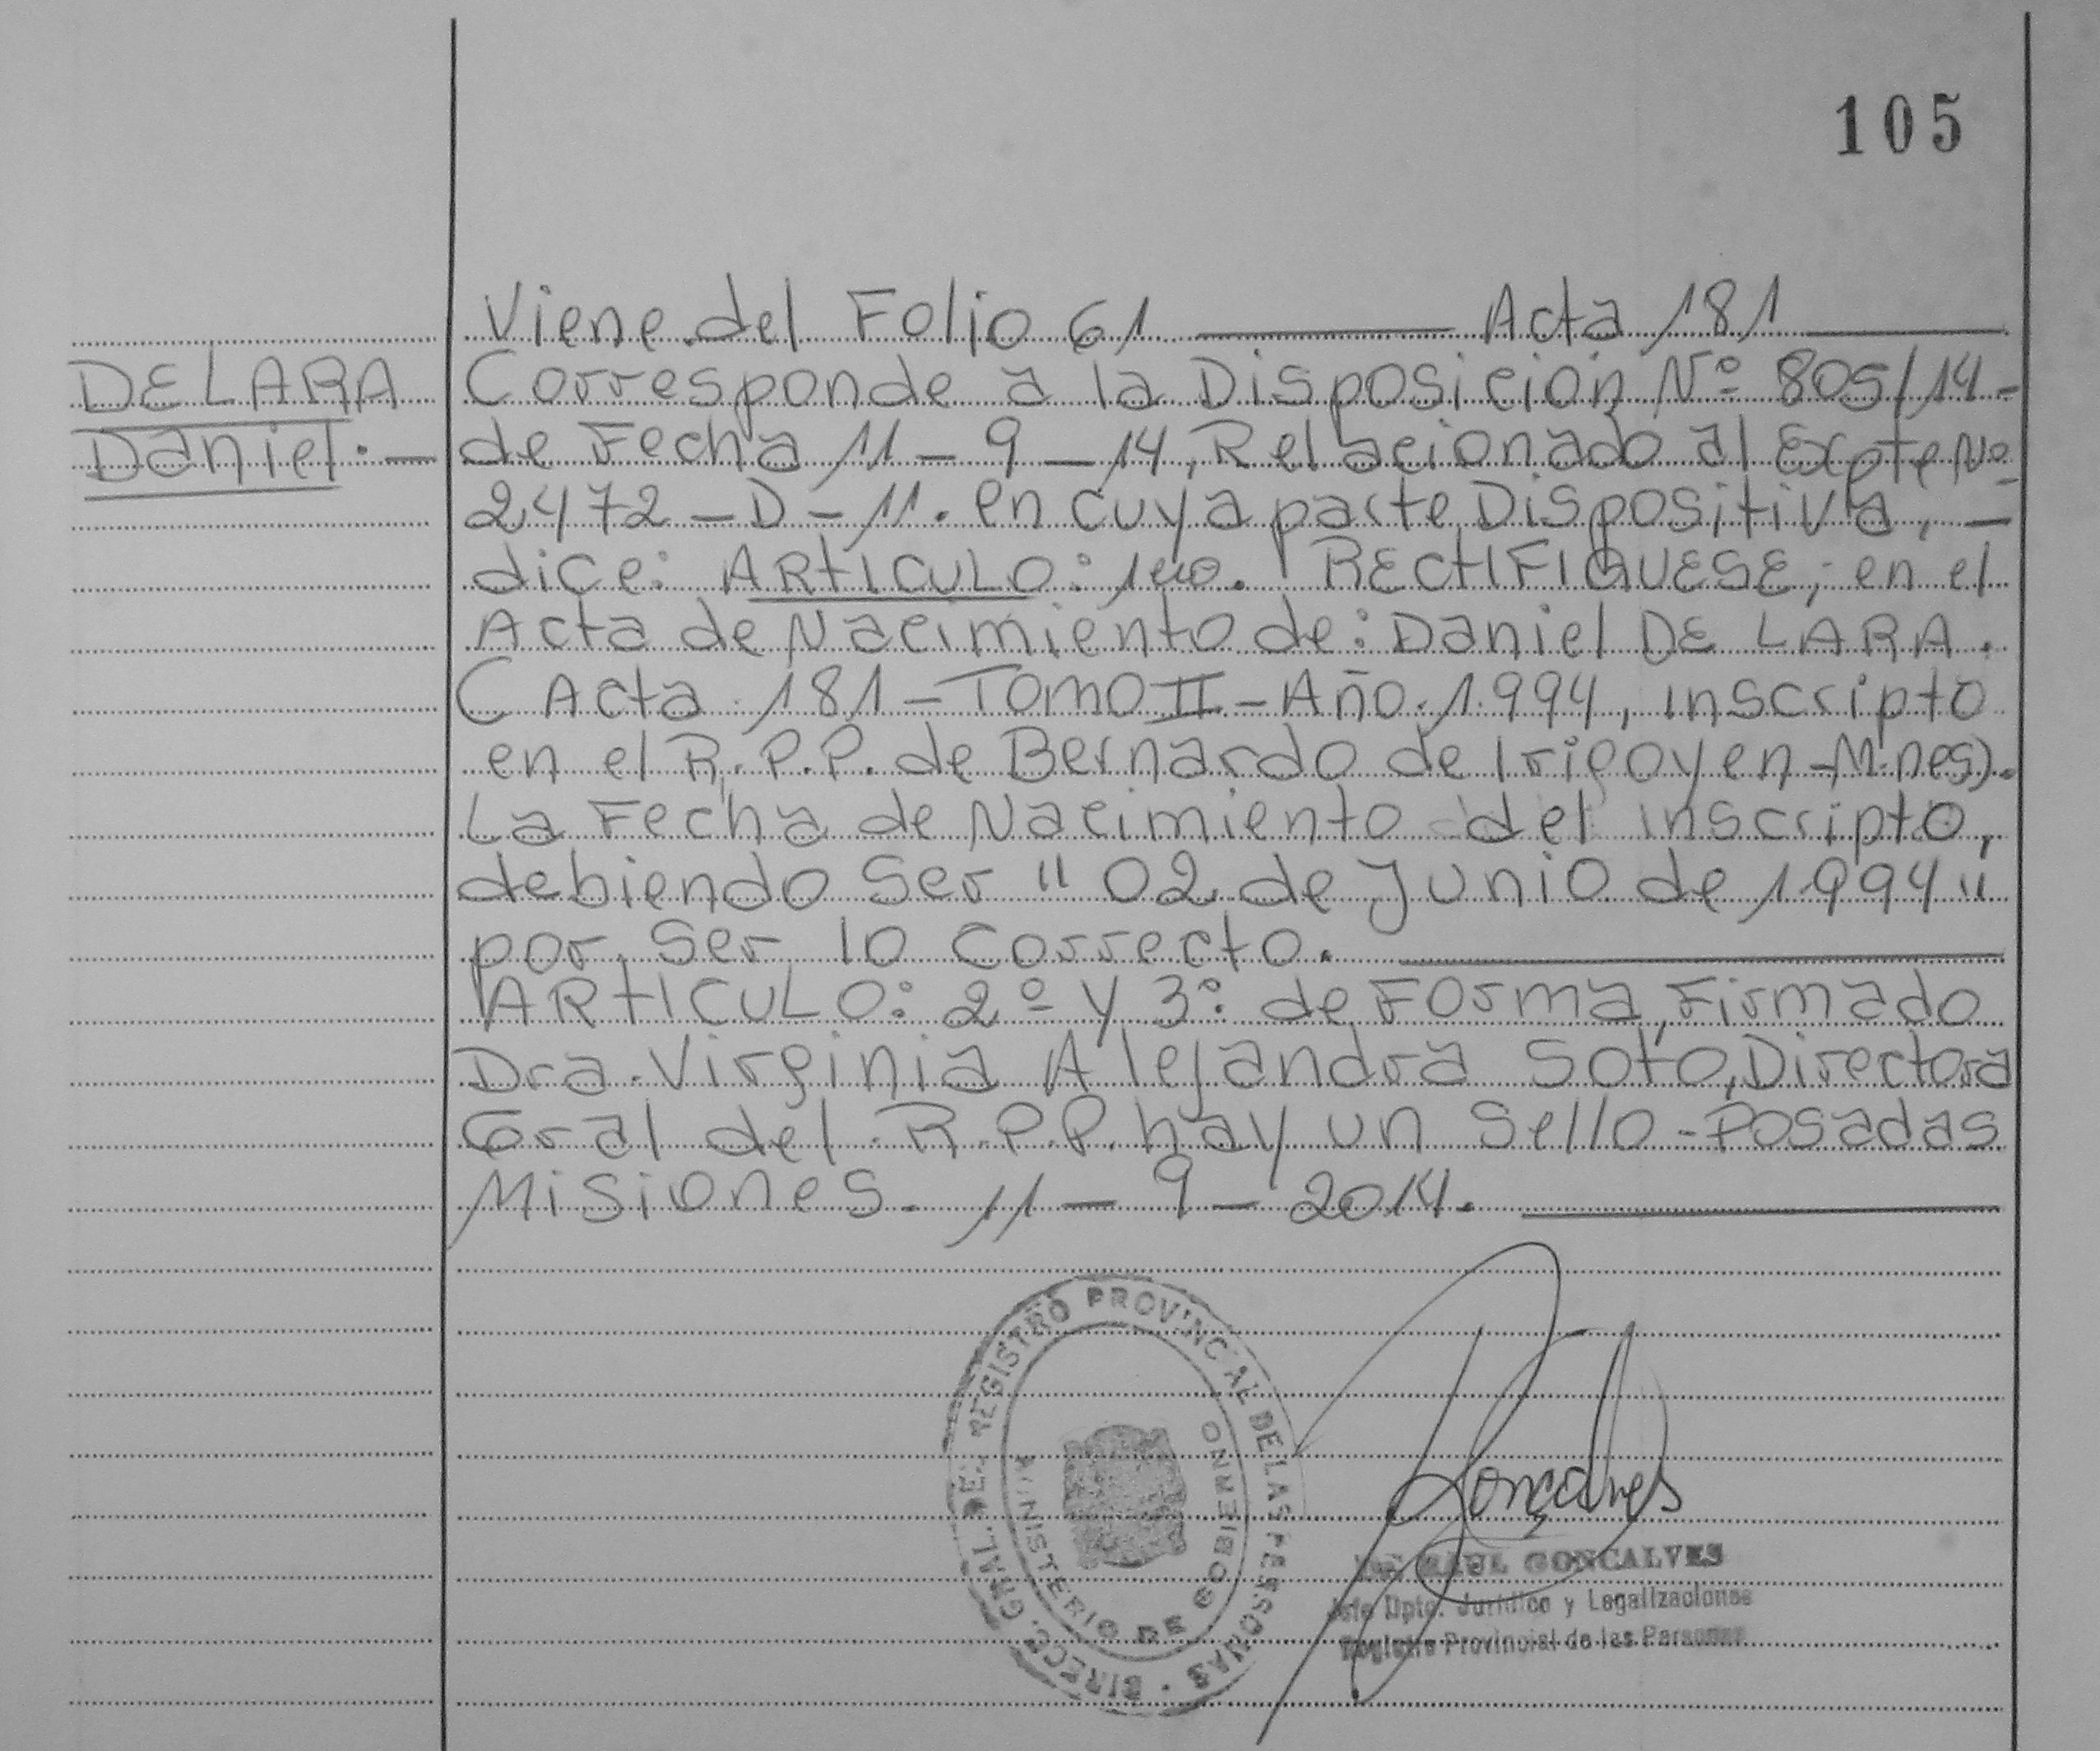 105
Viene del Folio 61 ——— Acta 181 ———
DE LARA
Daniel.—
Corresponde a la Disposición Nº 805/14-
de Fecha 11-9-14, Relacionado al Expte Nº
2472-D-11. en cuya parte Dispositiva, —
dice: ARTICULO: 1ero. RECTIFIQUESE; en el
Acta de Nacimiento de: Daniel DE LARA.
( Acta 181-Tomo II-Año 1.994, inscripto
en el R.P.P. de Bernardo de Irigoyen-Mnes).
La Fecha de Nacimiento del inscripto,
debiendo Ser "02 de Junio de 1.994"
por Ser lo Correcto. ———
ARTICULO: 2º y 3º de Forma, Firmado
Dra. Virginia Alejandra Soto, Directora
Gral del R.P.P. hay un Sello-Posadas
Misiones. 11-9-2014. ———
DIRECC. GRAL. DEL REGISTRO PROVINCIAL DE LAS PERSONAS
MINISTERIO DE GOBIERNO
Gonçalves
RAUL GONCALVES
Jefe Dpto. Jurídico y Legalizaciones
Registro Provincial de las Personas